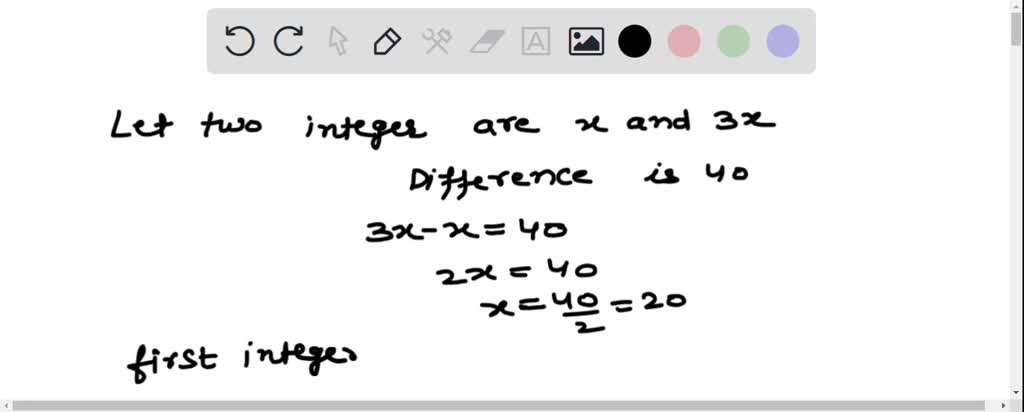 Let two integer are x and 3x
Difference is 40
3x-x=40
2x=40
x=40/2=20
first integer